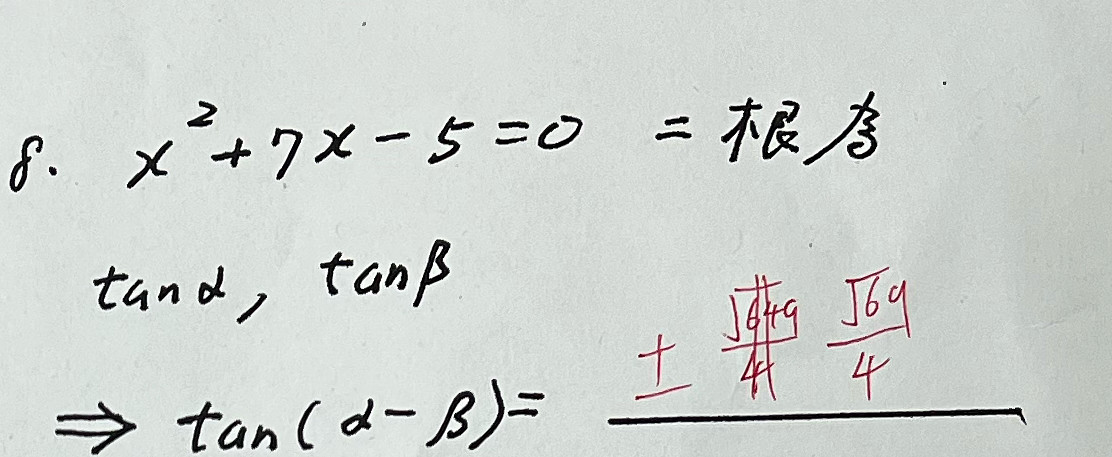 8. x²+7x-5=0 =根为
tanα, tanβ
⇒ tan(α-β)= ± √69/4